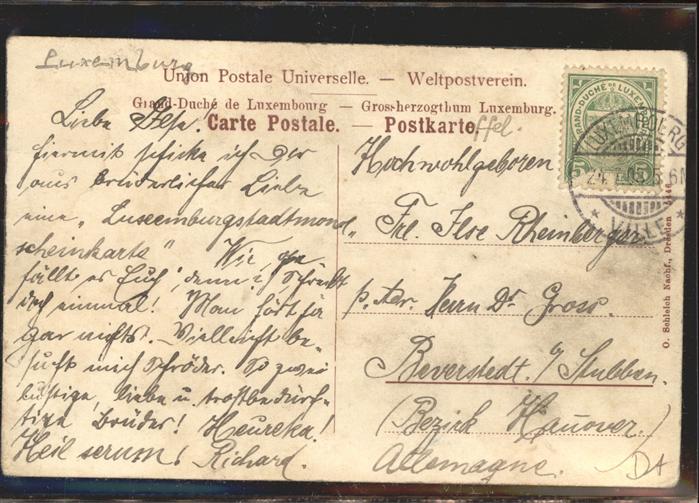 Luxemburg
Union Postale Universelle. — Weltpostverein.
Grand-Duché de Luxembourg — Grossherzogthum Luxemburg.
Carte Postale. — Postkarte.
Liebe Ilse!
Hiermit schicke ich Dir
aus brüderlicher Liebe
eine „Luxemburgstadtmond
scheinkarte“ Wie ge
fällt es Euch, denn? Schreibt
doch einmal! Man hört ja
gar nichts. Vielleicht be-
sucht mich Schröder. So zwei
lustige, liebe u. trostbedürf-
tige Brüder! Heureka!
Heil
Richard.
Hochwohlgeboren
Frl. Ilse Rheinberger
p. Adr. Herrn Dr. Gross.
Beverstedt. b/ Stubben.
(Bezirk Hannover.)
Allemagne.
GRAND-DUCHÉ DE LUXEMBOURG
5
LUXEMBURG
VILLE
O. Schleich Nachf., Dresden